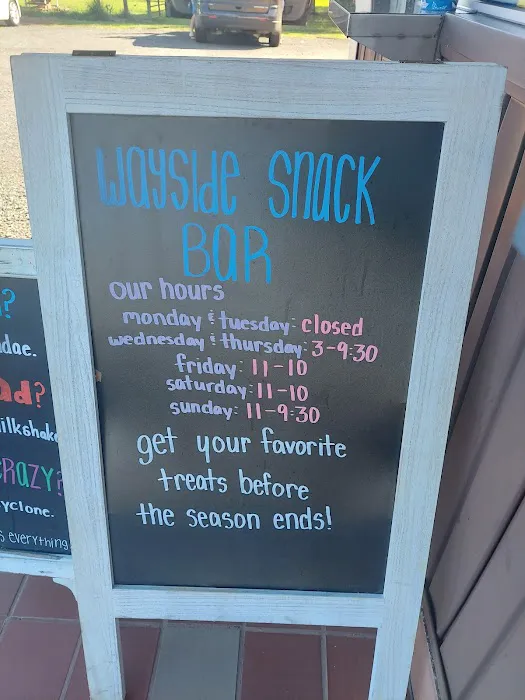 wayside snack
BAR
our hours
monday & tuesday: closed
wednesday & thursday: 3-9:30
friday: 11-10
saturday: 11-10
sunday: 11-9:30
get your favorite
treats before
the season ends!
?
dae.
?
CRAZY?
yclone.
everything